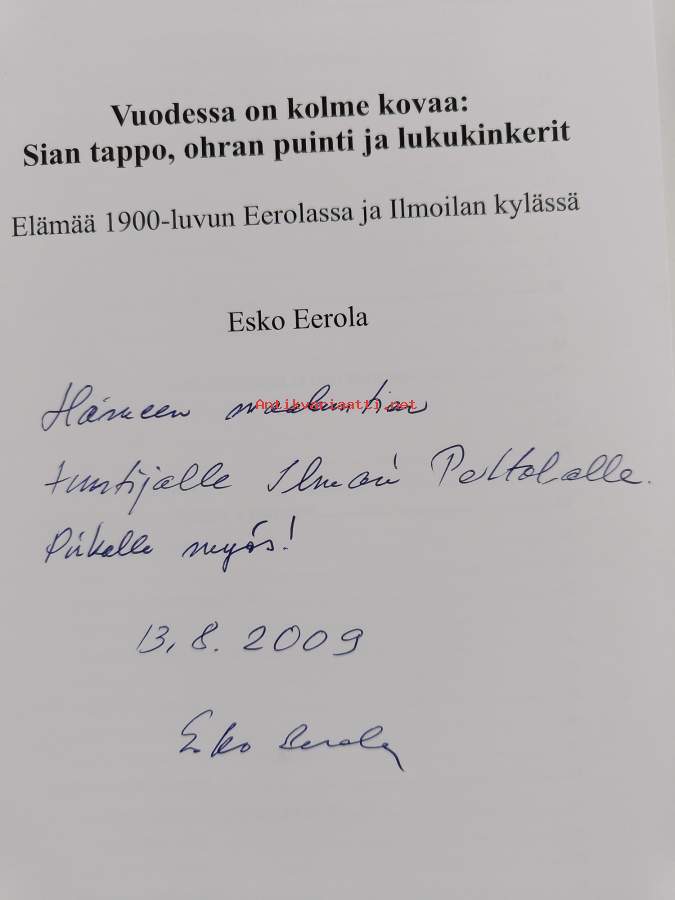 Vuodessa on kolme kovaa:
Sian tappo, ohran puinti ja lukukinkerit
Elämää 1900-luvun Eerolassa ja Ilmoilan kylässä
Esko Eerola
Hämeen maakunnan
Antikvariaatti.net
tuntijalle Ilmari Peltolalle.
myös!
13.8.2009
Esko Eerola